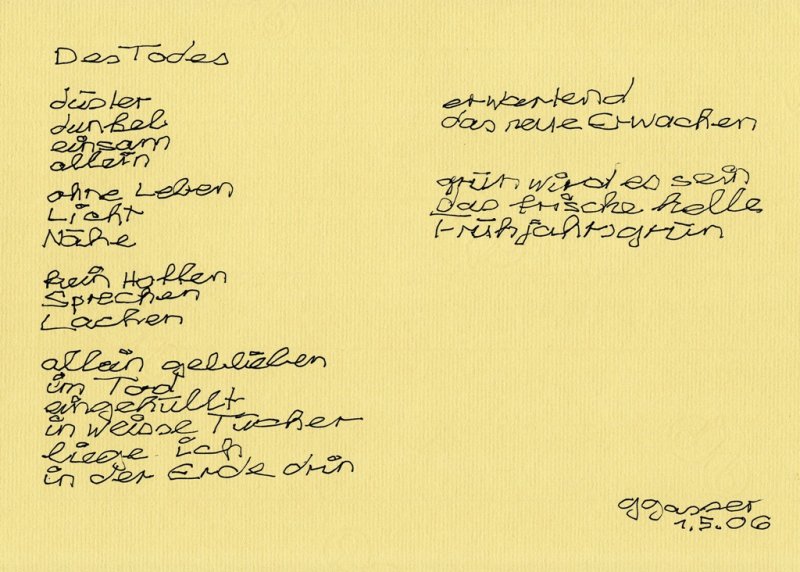 Des Todes
düster
dunkel
einsam
allein
ohne Leben
Licht
Nähe
kein Hoffen
Sprechen
Lachen
allein geblieben
im Tod
eingehüllt
in weisse Tücher
liege ich
in der Erde drin
erwartend
das neue Erwachen
grün wird es sein
das frische helle
Frühjahrsgrün
ggasser
1.5.06